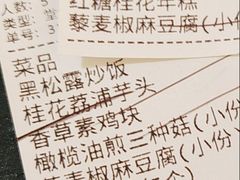 人数: 5
类型: 堂
单号: 3
红糖桂花年糕
藜麦椒麻豆腐(小份
菜品
黑松露炒饭
桂花荔浦芋头
香草素鸡块
橄榄油煎三种菇(小份
藜麦椒麻豆腐(小份)